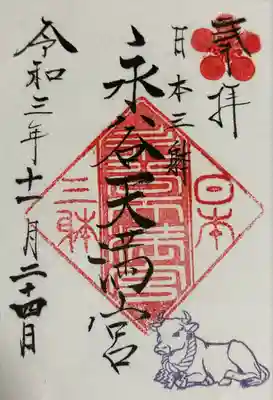 奉拝
日本三躰
永谷天満宮
日本
三躰
令和三年十一月二十四日